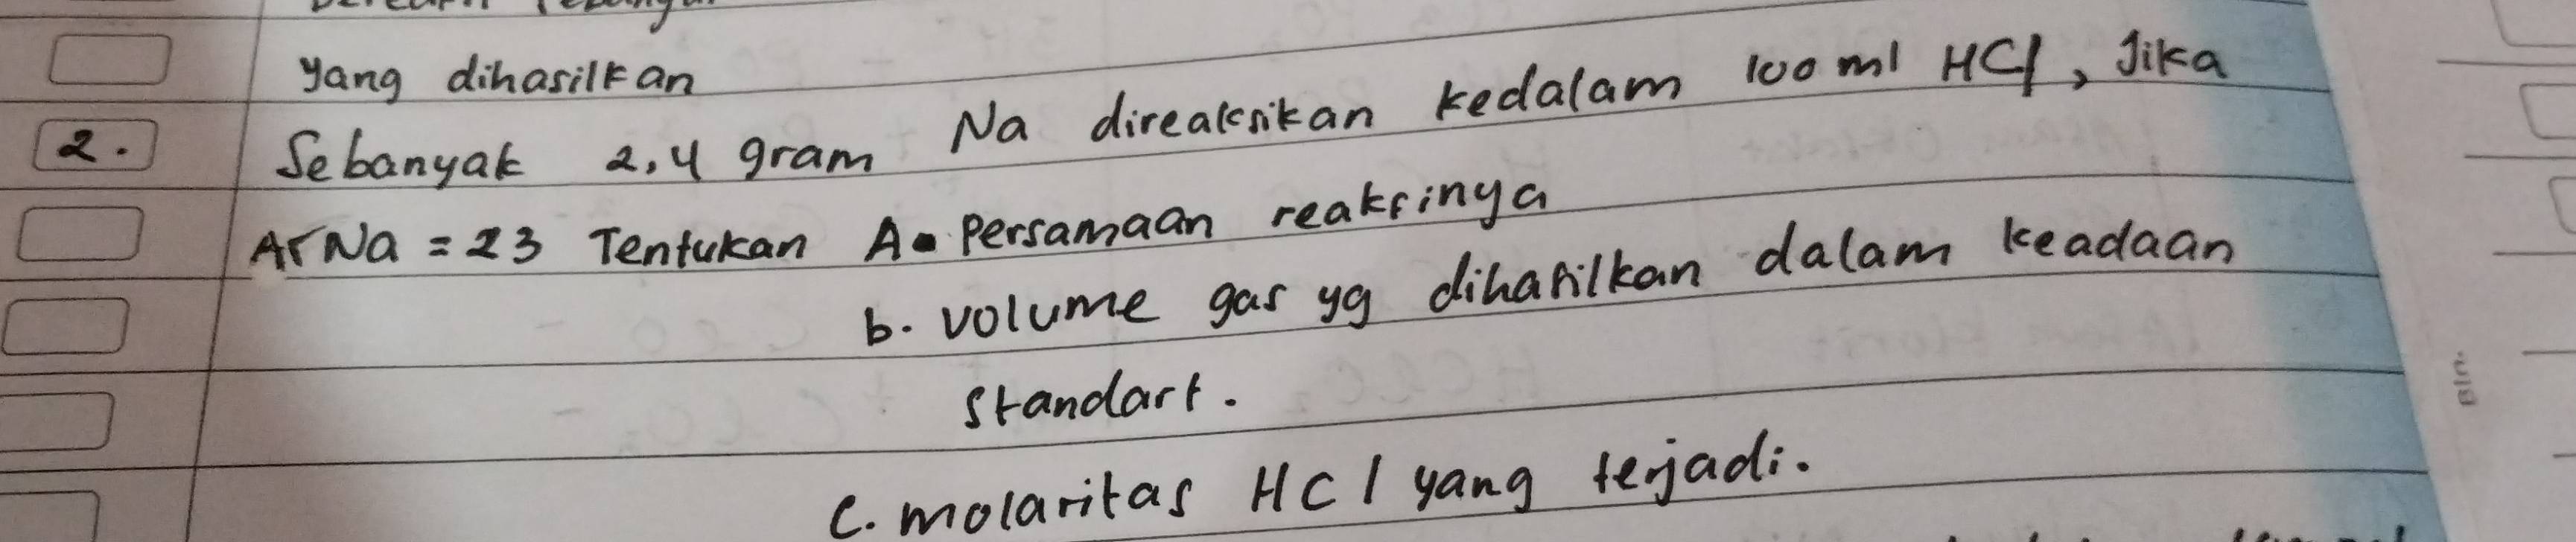 yang dihasilkan
2. Sebanyak 2,4 gram Na direaksikan kedalam 100 ml HCl, Jika
Ar Na = 23 Tentukan A. Persamaan reaksinya
b. volume gas yg dihasilkan dalam keadaan
standart.
c. molaritas HCl yang terjadi.
Bln.